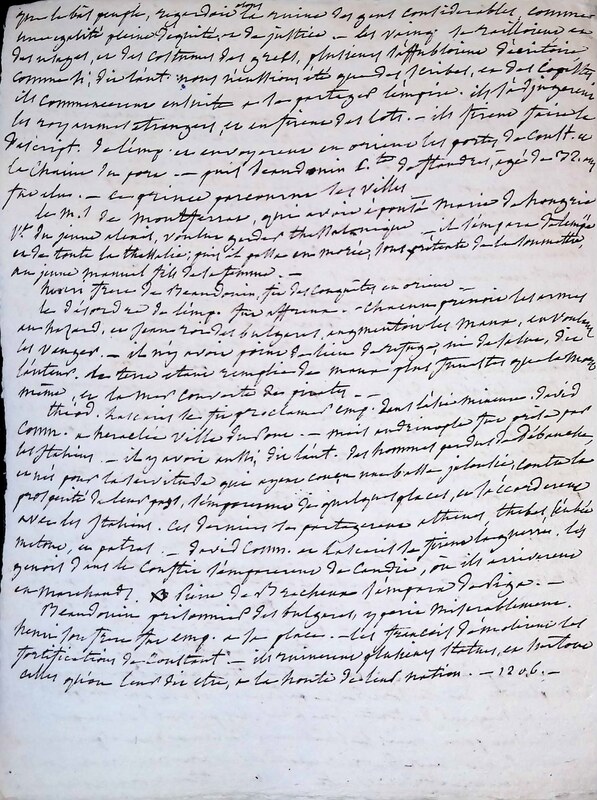 que le bas peuple, regardoit alors la ruine des gens considérables, comme
une égalité pleine d'équité, et de justice — les vainq. se railloient
des usages, et des costumes des grecs, plusieurs s'affubloient d'écritoire
comme si, disoient nous n'eussions été que des scribes, et des copistes
ils commencerent ensuite a se partager l'empire. ils s'adjugerent
les royaumes étrangers, et en firent des lots. — ils firent faire la
descript. de l'emp. et envoyerent en orient les portes de Const. et
la chaine du port — puis Beaudouin C.te de flandres, agé de 32. ans
fut élu. — ce prince parcourut les villes
le m.s de Montferrat, qui avoit épousé Marie de hongrie
V.e du jeune alexis, voulut garder thessalonique — il s'empara de
et de toute la thessalie; puis il passa en morée, sous prétexte de la soumettre,
au jeune manuel fils de sa femme. —
henri frere de Beaudouin, fit des conquêtes en orient —
le désordre de l'emp. fut affreux. — chacun prenoit les armes
au hazard, et jean roi des bulgares, augmentoit les maux, en voulant
les venger — il n'y avoit point de lieu de refuge, ni de salut, dit
l'auteur. la terre étoit remplie de maux plus funestes que la mort
même, et la mer couverte de pirates —
théod. Lascaris se fit proclamer emp. dans l'asie mineure. david
Comn. a heraclée ville du pont — mais andrinople fut prise par
les italiens — il y avoit aussi, dit l'aut. des hommes perdus de débauche,
et nés pour la servitude que ayant conçu une basse jalousie, contre la
prospérité de leur pays, s'emparerent de quelques places, et s'accorderent
avec les italiens. Ces derniers se partagerent athenes, thebes, l'eubée
metone, et patras. — david Comn. et Lascaris se firent la guerre. les
genois dans le conflit s'emparerent de Candie, ou ils arriverent
en marchands. Pierre de Bracheux s'empara de Piga. —
Beaudouin prisonnier des bulgares, y perit miserablement.
henri son frere fut emp. a sa place. — les français démolirent les
fortifications de Constant — ils ruinerent plusieurs statues, et surtout
celles qu'on leur dit etre, a la honte de leur nation. — 1206. —